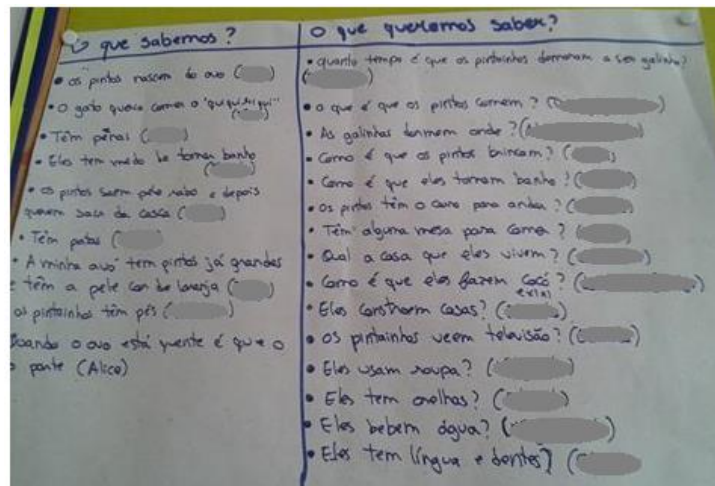 O que sabemos?
• os pintos nascem do ovo ( )
• O gato queria comer o "qui qui ri qui"
( )
• Têm penas ( )
• Eles tem medo de tomar banho
( )
• os pintos saem pelo rabo e depois
querem sair da casca ( )
• Têm patas ( )
• A minha avó tem pintos já grandes
e têm a pele cor de laranja ( )
os pintainhos têm pés ( )
Quando o ovo está quente é que o
parte (Alice)
O que queremos saber?
• quanto tempo é que os pintainhos demoram a ser galinha?
( )
• o que é que os pintos comem? ( )
• As galinhas dormem onde? ( )
• Como é que os pintos brincam? ( )
• Como é que eles tomam banho? ( )
• Os pintos têm o carro para andar? ( )
• Têm alguma mesa para comer? ( )
• Qual a casa que eles vivem? ( )
• Como é que eles fazem cocó? ( )
• Eles constroem casas? ( )
• os pintainhos veem televisão? ( )
• Eles usam roupa? ( )
• Eles tem orelhas? ( )
• Eles bebem água? ( )
• Eles tem língua e dentes? (